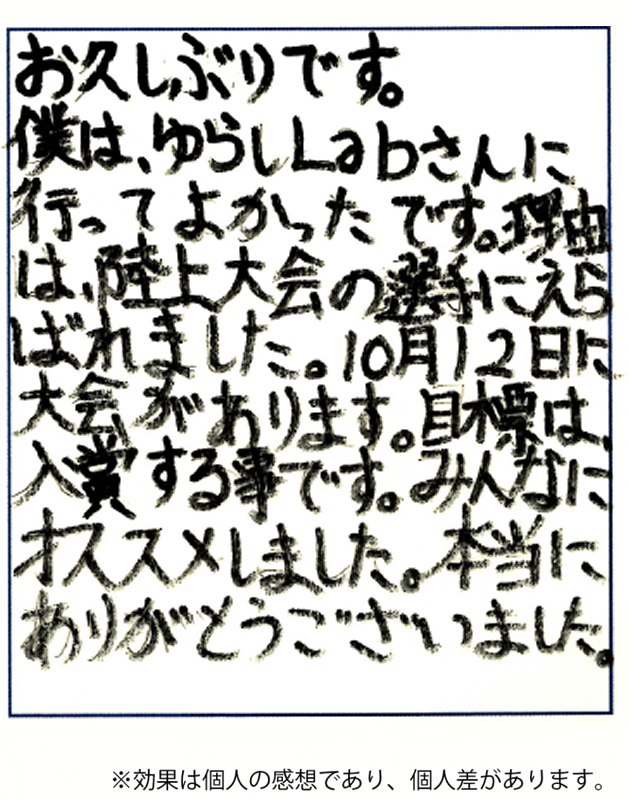 お久しぶりです。
僕は、ゆらしLabさんに
行ってよかったです。理由
は、陸上大会の選手にえら
ばれました。10月12日に
大会があります。目標は、
入賞する事です。みんなに
オススメしました。本当に
ありがとうございました。
※効果は個人の感想であり、個人差があります。